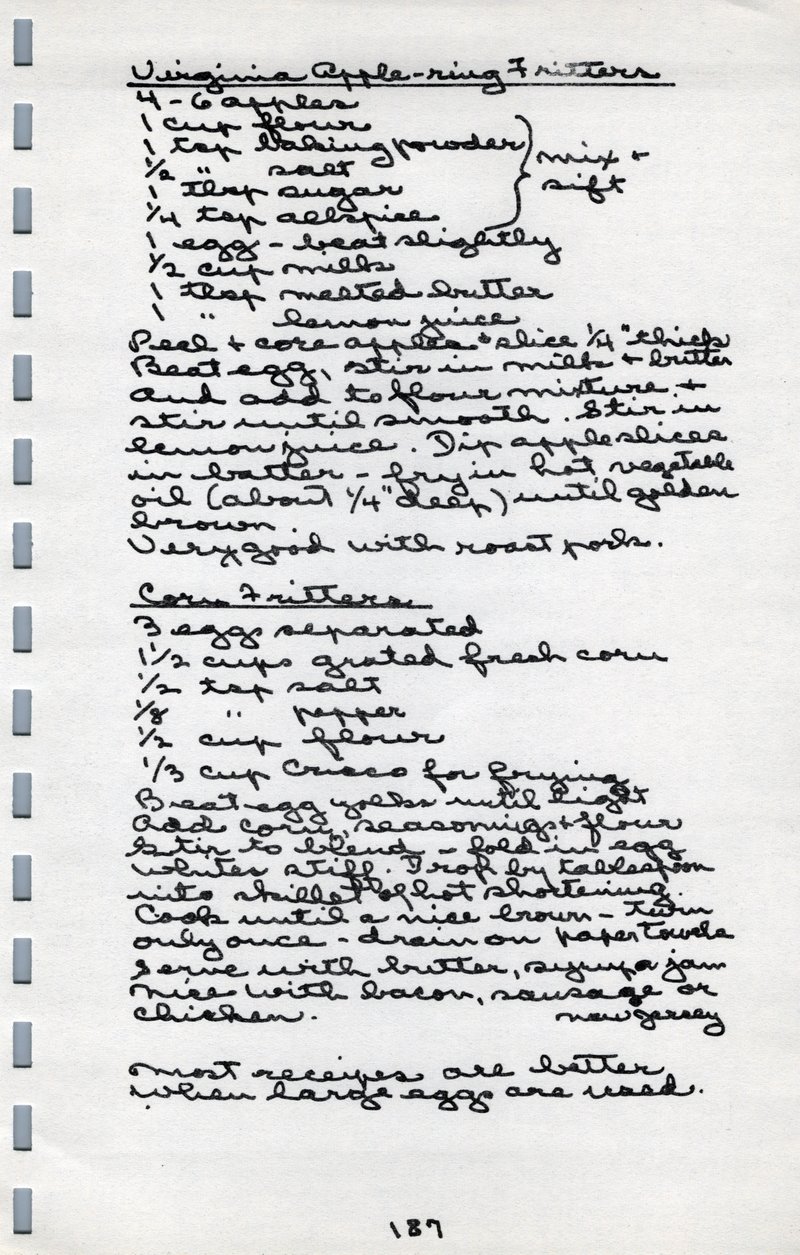 Virginia Apple-ring Fritters
4-6 apples
1 cup flour
1 tsp baking powder
1/2 " salt
1 tbsp sugar
1/4 tsp allspice
mix +
sift
1 egg - beat slightly
1/2 cup milk
1 tbsp melted butter
1 " lemon juice
Peel + core apples + slice 1/4" thick
Beat egg, stir in milk + butter
And add to flour mixture +
stir until smooth. Stir in
lemon juice. Dip apple slices
in batter - fry in hot vegetable
oil (about 1/4" deep) until golden
brown.
Very good with roast pork.
Corn Fritters
3 eggs separated
1 1/2 cups grated fresh corn
1/2 tsp salt
1/8 " pepper
1/2 cup flour
1/3 cup Crisco for frying
Beat egg yolks until light
Add corn, seasonings + flour
Stir to blend - fold in egg
whites stiff. Drop by tablespoon
into skillet of hot shortening.
Cook until a nice brown - turn
only once - drain on paper towels
Serve with butter, syrup a jam
Nice with bacon, sausage or
chicken. New Jersey
Most receipes are better
when large eggs are used.
187